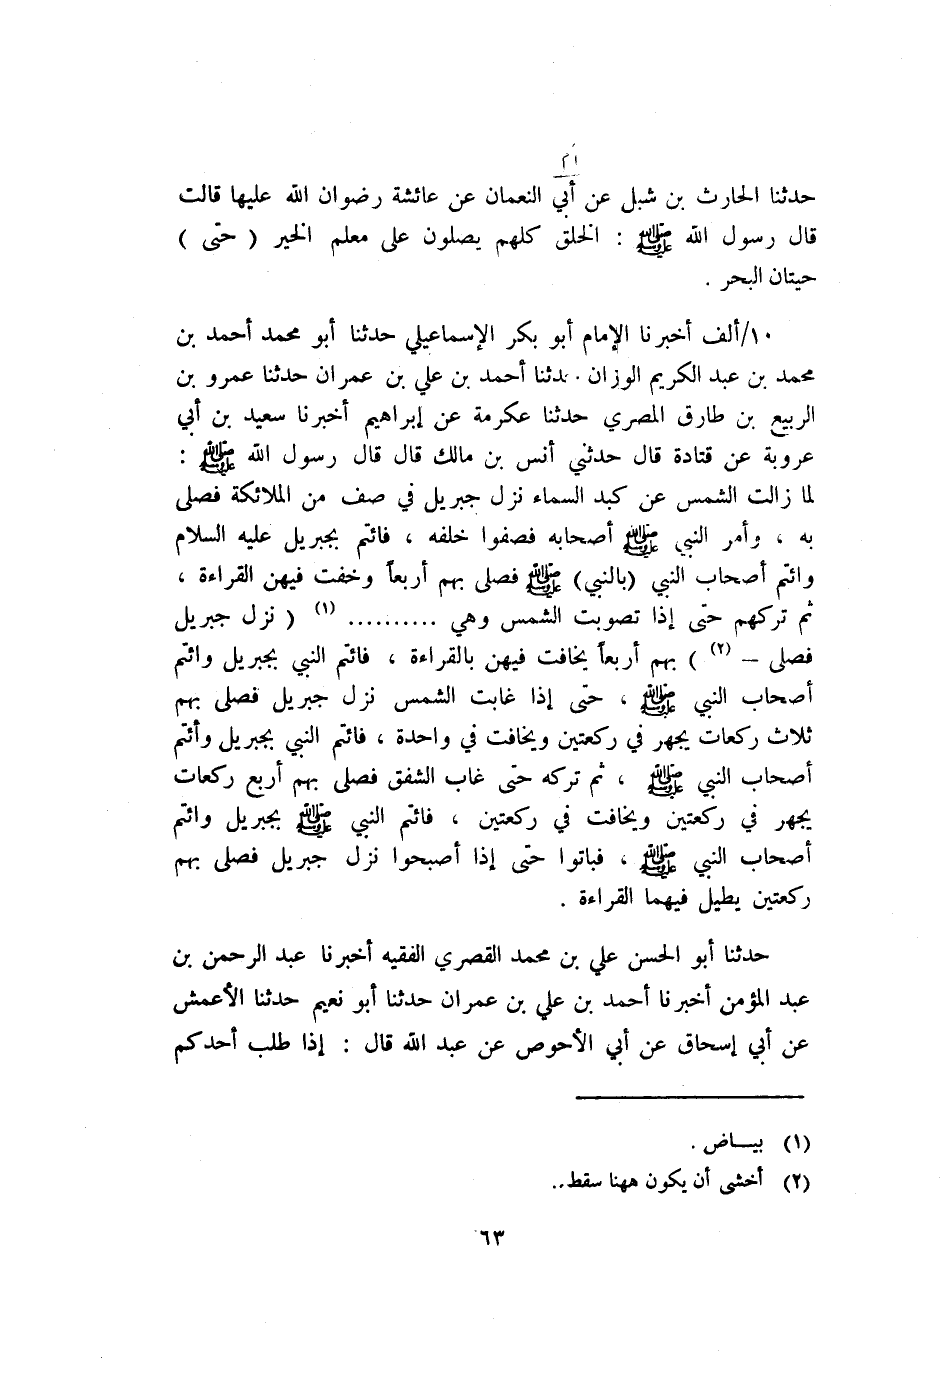 ام
حدثنا الحارث بن شبل عن أبي النعمان عن عائشة رضوان الله عليها قالت
قال رسول الله ﷺ : الخلق كلهم يصلون على معلم الخير ( حتى )
حيتان البحر .
١٠/ألف أخبرنا الإمام أبو بكر الإسماعيلي حدثنا أبو محمد أحمد بن
محمد بن عبد الكريم الوزان . حدثنا أحمد بن علي بن عمران حدثنا عمرو بن
الربيع بن طارق المصري حدثنا عكرمة عن إبراهيم أخبرنا سعيد بن أبي
عروبة عن قتادة قال حدثني أنس بن مالك قال قال رسول الله ﷺ :
لما زالت الشمس عن كبد السماء نزل جبريل في صف من الملائكة فصلى
به ، وأمر النبي ﷺ أصحابه فصفوا خلفه ، فائتم بجبريل عليه السلام
وائتم أصحاب النبي (بالنبي) ﷺ فصلى بهم أربعاً وخفت فيهن القراءة ،
ثم تركهم حتى إذا تصوبت الشمس وهي .......... (١) ( نزل جبريل
فصلى – (٢) ) بهم أربعاً يخافت فيهن بالقراءة ، فائتم النبي بجبريل وائتم
أصحاب النبي ﷺ ، حتى إذا غابت الشمس نزل جبريل فصلى بهم
ثلاث ركعات يجهر في ركعتين ويخافت في واحدة ، فائتم النبي بجبريل وأئتم
أصحاب النبي ﷺ ، ثم تركه حتى غاب الشفق فصلى بهم أربع ركعات
يجهر في ركعتين ويخافت في ركعتين ، فائتم النبي ﷺ بجبريل وائتم
أصحاب النبي ﷺ ، فباتوا حتى إذا أصبحوا نزل جبريل فصلى بهم
ركعتين يطيل فيهما القراءة .
حدثنا أبو الحسن علي بن محمد القصري الفقيه أخبرنا عبد الرحمن بن
عبد المؤمن أخبرنا أحمد بن علي بن عمران حدثنا أبو نعيم حدثنا الأعمش
عن أبي إسحاق عن أبي الأحوص عن عبد الله قال : إذا طلب أحدكم
(١) بيـــاض .
(٢) أخشى أن يكون ههنا سقط..
٦٣